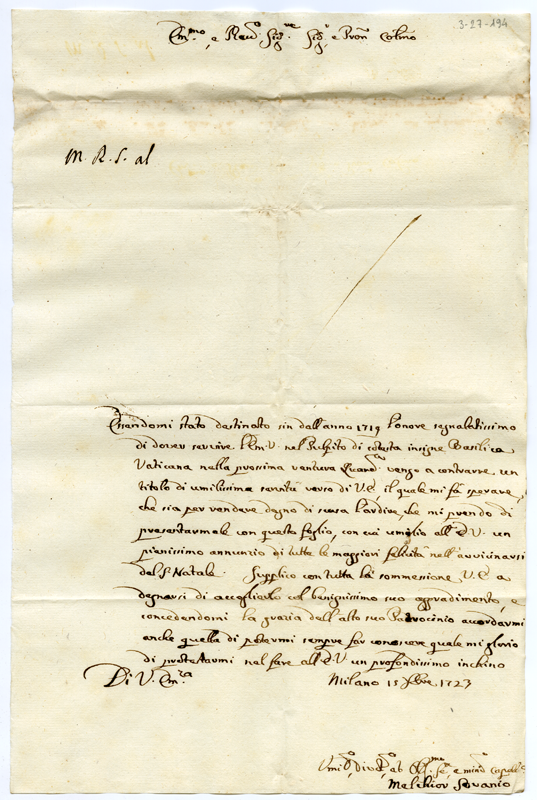 3-27-194
Em.mo e Rev.o Sig.re Sig.r e Pron Colmo
M. R. S. al
Essendomi stato destinato sin dall'anno 1719 l'onore segnalatissimo
di dover servire l'Em. V. nel Pulpito di cotesta insigne Basilica
Vaticana nella prossima ventura Quar.a vengo a contrarre un
titolo di umilissima servitù verso di V. E. il quale mi fà sperare,
che sia per rendere degno di scusa l'ardire, che mi prendo di
presentarmele con questo foglio, con cui umilio all'E. V. un
pienissimo annunzio di tutte le maggiori felicità nell'avvicinarsi
del S. Natale. Supplico con tutta la sommessione V. E. a
degnarsi di accoglierlo col benignissimo suo aggradimento, e
concedendomi la grazia dell'alto suo Patrocinio accordarmi
anche quella di potermi sempre far conoscere quale mi glorio
di protestarmi nel fare all'E. V. un profondissimo inchino
Di V. Em.za Milano 15 Xbre 1723
Melchior